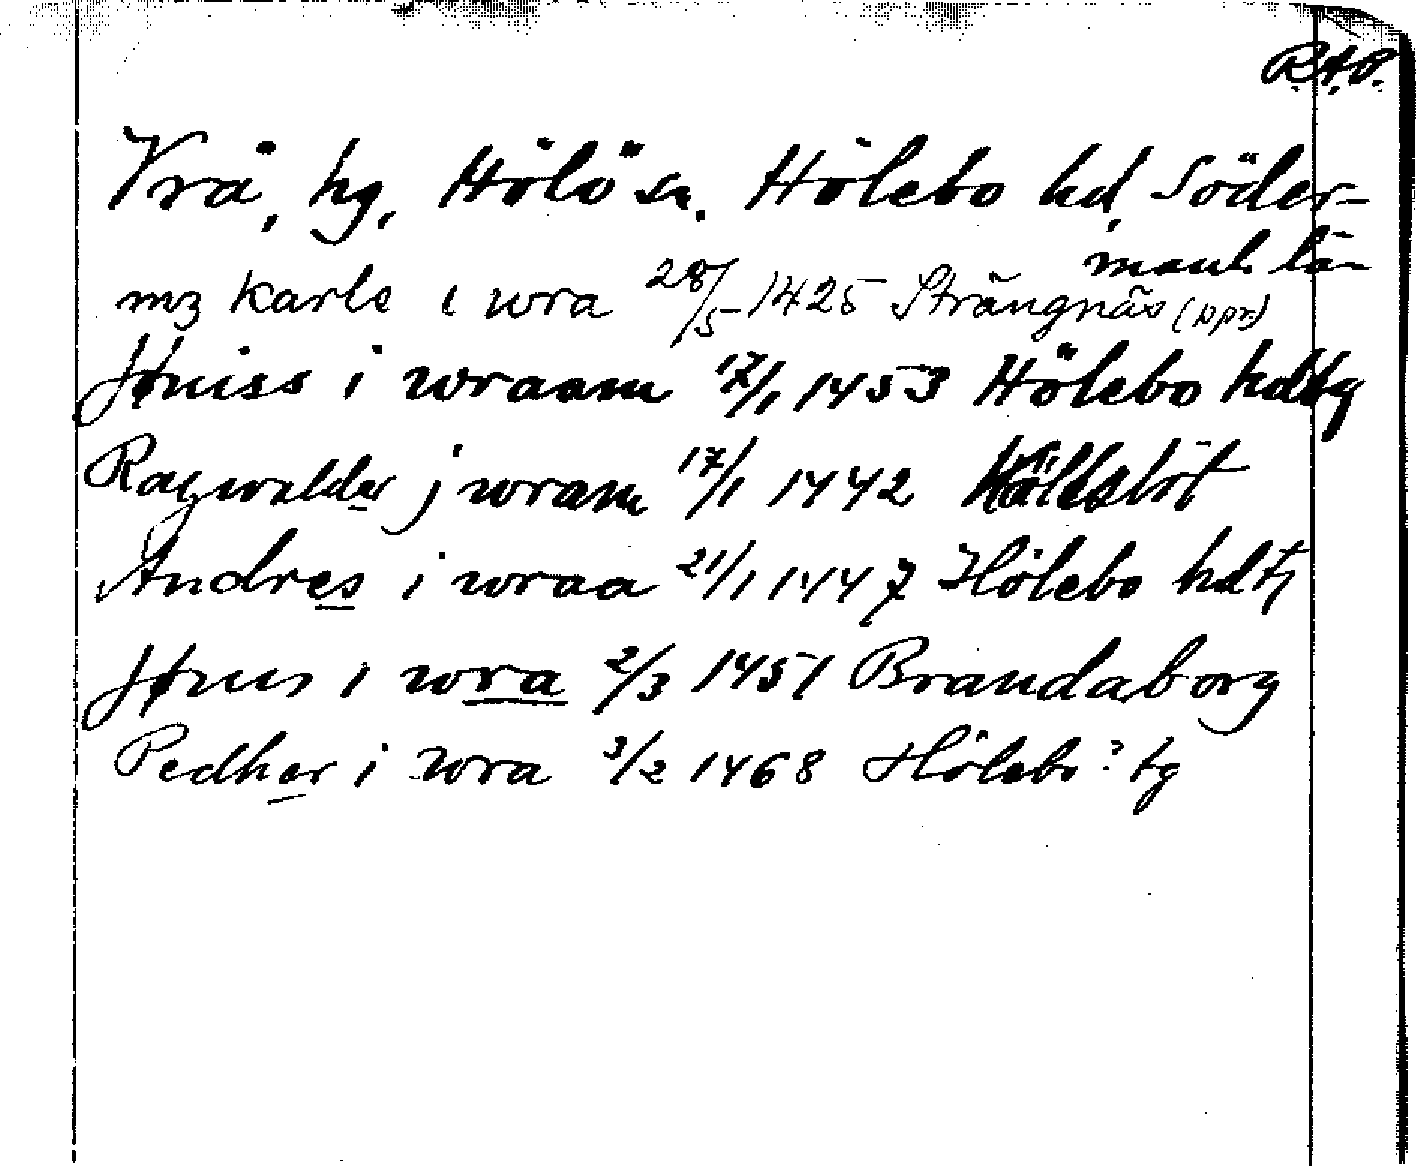 R.A.P.
Vrå, hg, Hölö sn. Hölebo hd, Söder-
manl. län
mz Karls i wra 28/5 1425 Strängnäs (ppr)
Jøniss i wraam 17/1 1453 Hölebo hdtg
Ragwalder j wram 17/1 1442
Andres i wraa 21/1 1447 Hölebo hdtg
Jøns i wra 2/3 1451 Brandaborg
Pedher i wra 3/2 1468 Hölebo? tg